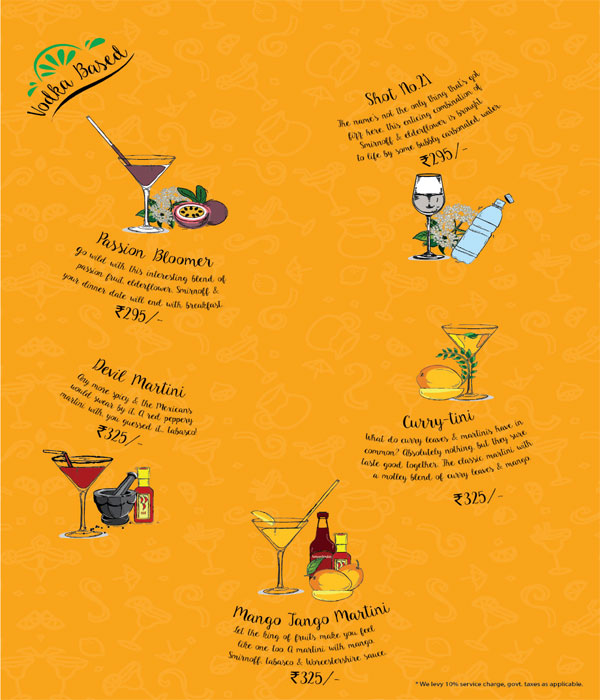 Vodka Based
Shot No.21
The name's not the only thing that's got
fizz here. this enticing combination of
Smirnoff & elderflower is brought
to life by some bubbly carbonated water
₹295/-
Passion Bloomer
Go wild with this interesting blend of
passion fruit, elderflower, Smirnoff &
your dinner date will end with breakfast.
₹295/-
Devil Martini
Any more spicy & the Mexicans
would swear by it. A red, peppery
martini with, you guessed it... tabasco!
₹325/-
Curry-tini
What do curry leaves & martinis have in
common? Absolutely nothing, but they sure
taste good together. The classic martini with
a motley blend of curry leaves & mango.
₹325/-
Mango Tango Martini
Let the king of fruits make you feel
like one too. A martini with mango,
Smirnoff, tabasco & Worcestershire sauce.
₹325/-
* We levy 10% service charge, govt. taxes as applicable.